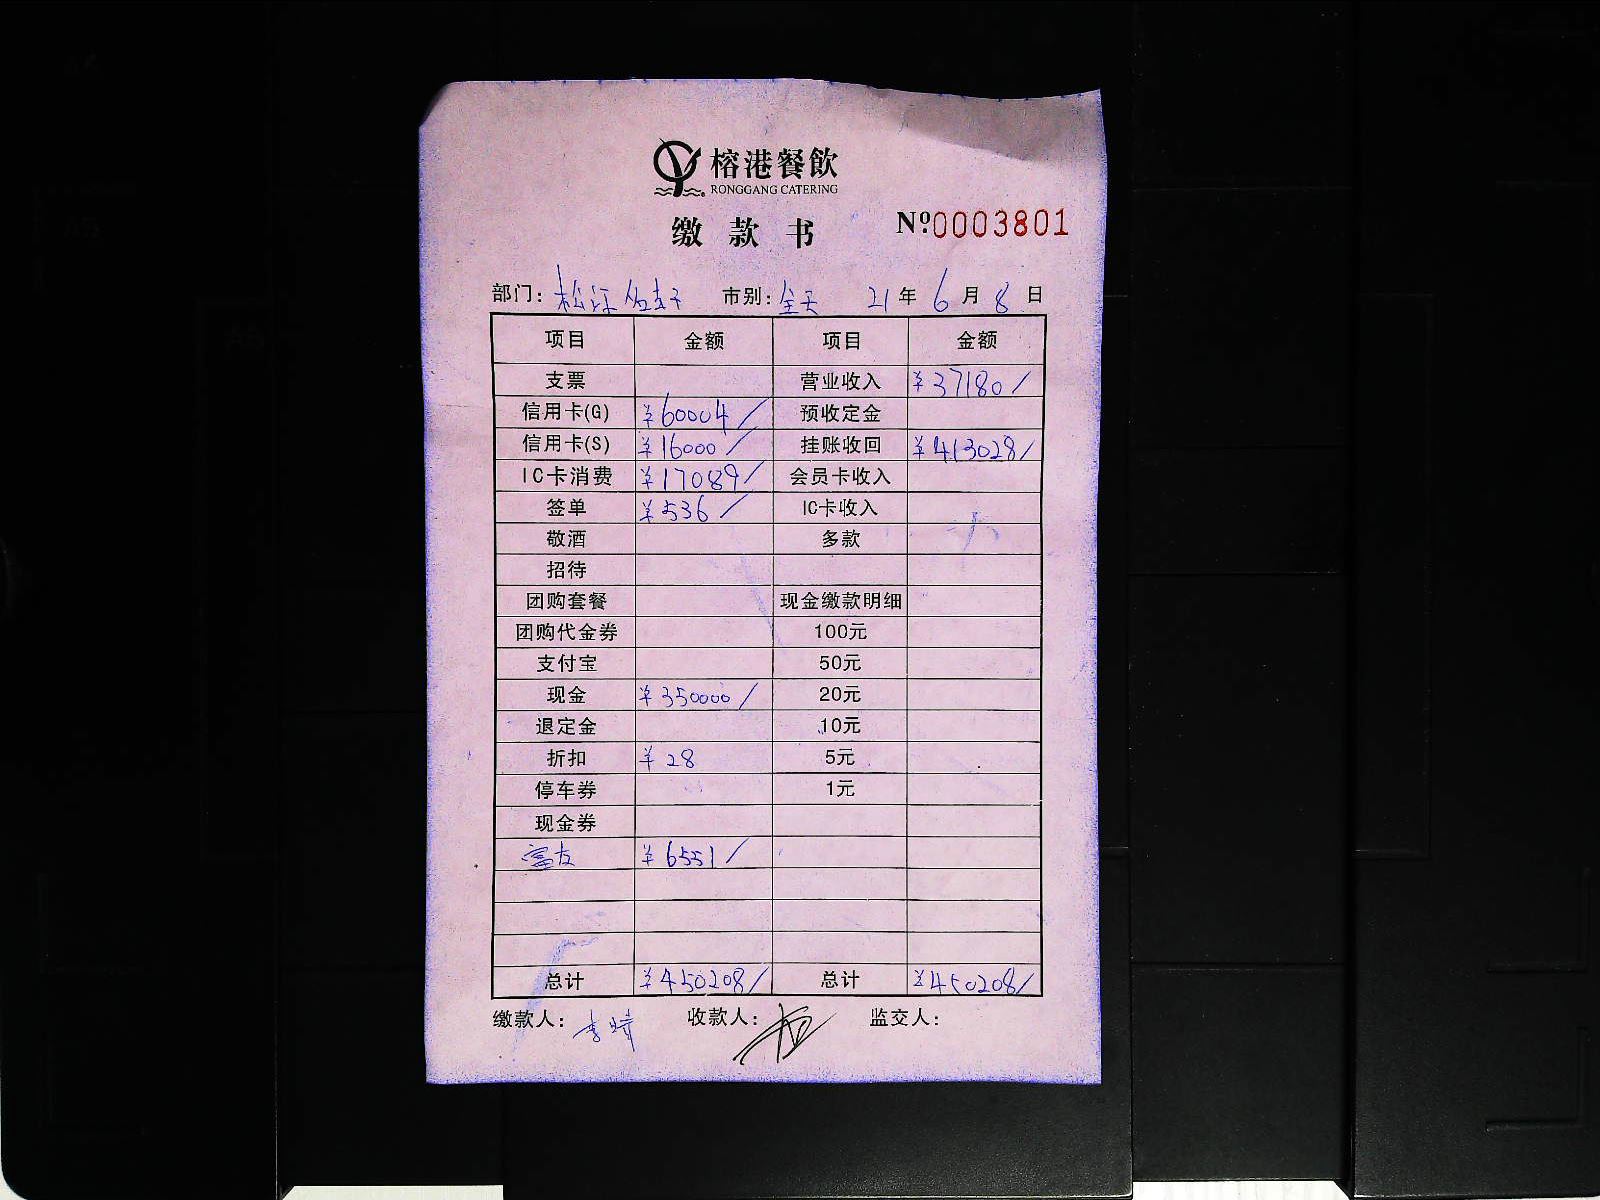 榕港餐飲
RONGGANG CATERING
缴款书 №:0003801
部门: 松江 市别: 全天 21年6月8日
项目 金额 项目 金额
支票 营业收入 ¥37180/
信用卡(G) ¥60004/ 预收定金
信用卡(S) ¥16000/ 挂账收回 ¥413028/
IC卡消费 ¥17089/ 会员卡收入
签单 ¥536/ IC卡收入
敬酒 多款
招待
团购套餐 现金缴款明细
团购代金券 100元
支付宝 50元
现金 ¥350000/ 20元
退定金 10元
折扣 ¥28 5元
停车券 1元
现金券
富友 ¥6551/
总计 ¥450208/ 总计 ¥450208/
缴款人: 收款人: 监交人: